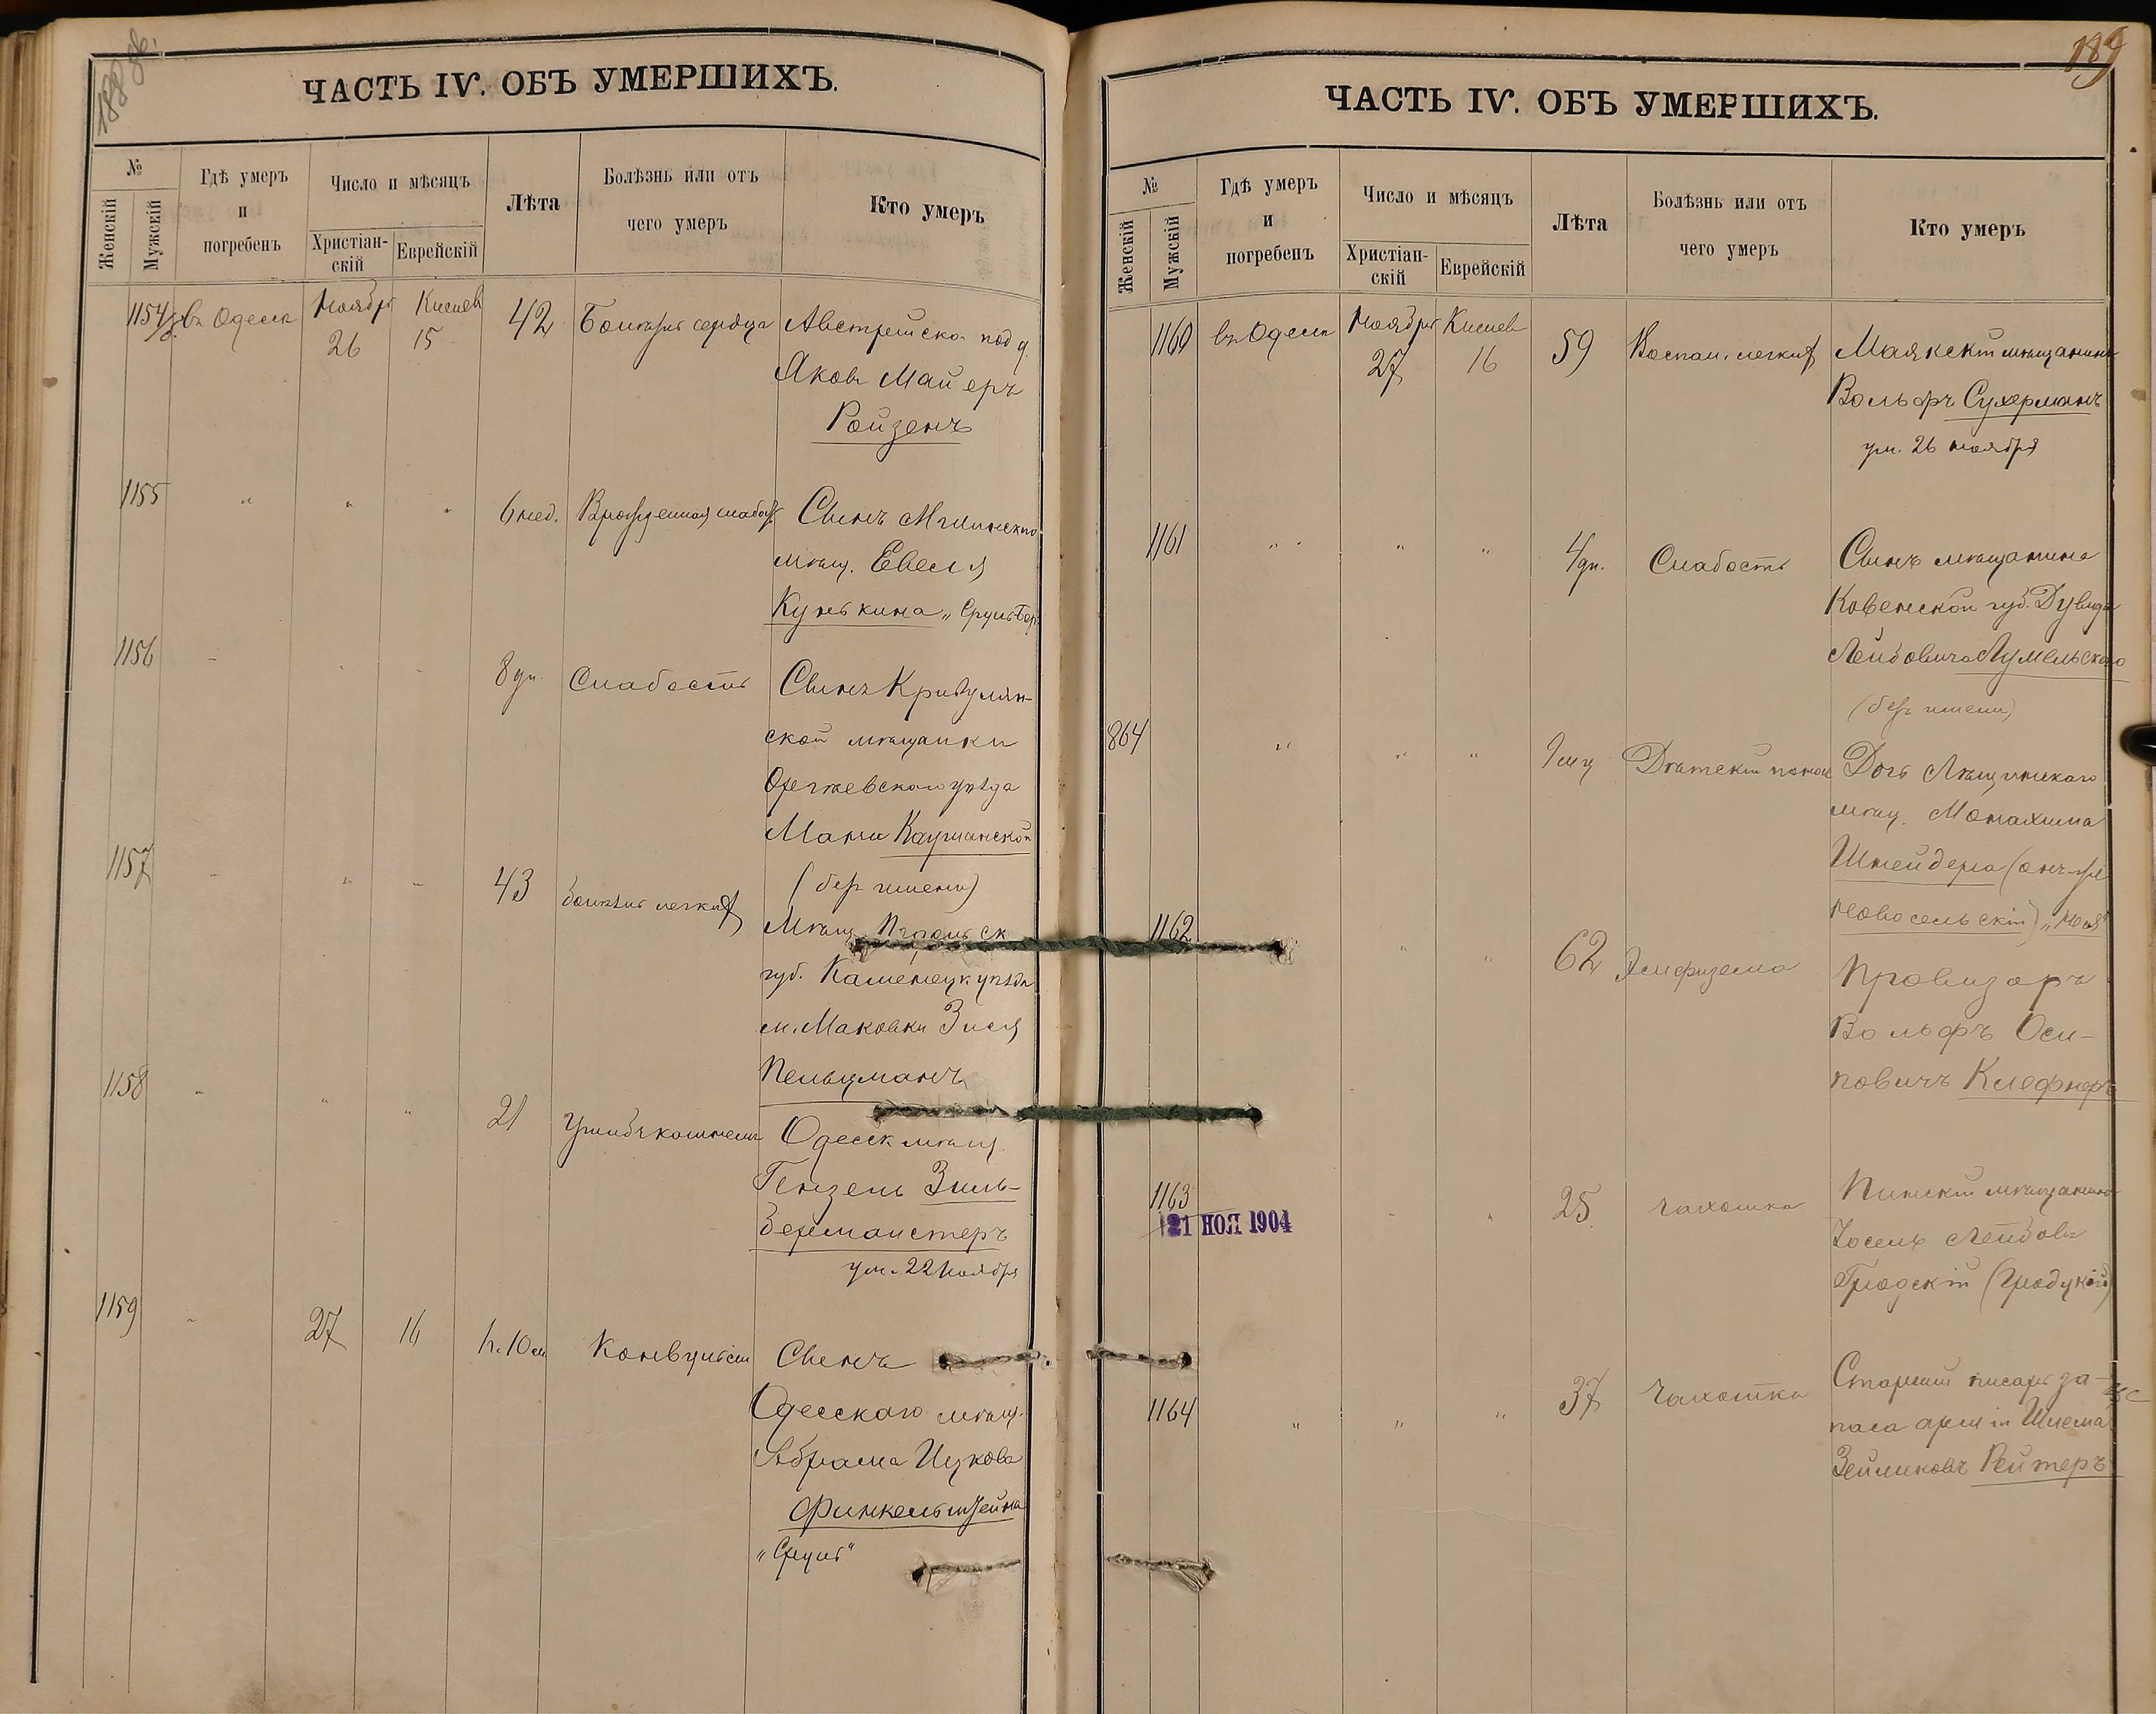 188 об.
ЧАСТЬ IV. ОБЪ УМЕРШИХЪ.
№
Женскій
Мужскій
Гдѣ умеръ
и
погребенъ
Число и мѣсяцъ
Христіан-
скій
Еврейскій
Лѣта
Болѣзнь или отъ
чего умеръ
Кто умеръ
1154 въ Одессѣ Ноября 26 Кислев 15 42 Болѣзнь сердца Австрійско- под д.
Яковъ Майеръ
Ройзенъ
1155 " " " 6 нед. Врожденная слабость Сынъ Мглинскаго
мѣщ. Евеля
Кунькина „Сруль Бер
1156 - - - 8 дн. Слабость Сынъ Кривулян-
ской мѣщанки
Оргѣевскаго уѣзда
Мани Каушанской
(безъ имени)
1157 - " - 43 болѣзнь легкихъ
Мѣщ. Подольск
губ. Каменецк уѣзда
м. Маковки Зися
Пельцманъ
1158 " " " 21 Ушибъ Одесск мѣщ.
Гензель Зиль-
бермайстеръ
ум. 22 Ноября
1159 " 27 16 1 г. 10 м Конвульсіи Сынъ
Одесскаго мѣщ.
Абрама Ицкова
Финкельштейна
„Сруль"
189
ЧАСТЬ IV. ОБЪ УМЕРШИХЪ.
№
Женскій
Мужскій
Гдѣ умеръ
и
погребенъ
Число и мѣсяцъ
Христіан-
скій
Еврейскій
Лѣта
Болѣзнь или отъ
чего умеръ
Кто умеръ
1160 въ Одессѣ Ноября 27 Кислев 16 59 Воспал. легкихъ Маякскій мѣщанинъ
Вольфъ Сухерманъ
ум. 26 ноября
1161 " " " " 4 дн. Слабость Сынъ мѣщанина
Ковенской губ. Дувида
Лейбовича
(безъ имени)
864 " " " 9 мц Дѣтскій поносъ Дочь
мѣщ. Монахима
Шнейдера (онъ-же
Новосельскій)
1162 " " 62 Эмфизема Провизоръ
Вольфъ Оси-
повичъ Клефнеръ
1163 - " 25 Чахотка Пинскій мѣщанинъ
21 НОЯ 1904
Іосель Лейбовъ
Гродскій (Гродцкій)
1164 " " " 37 Чахотка Старшій писарь за-
паса арміи Шлема
Зейликовъ Рейтеръ